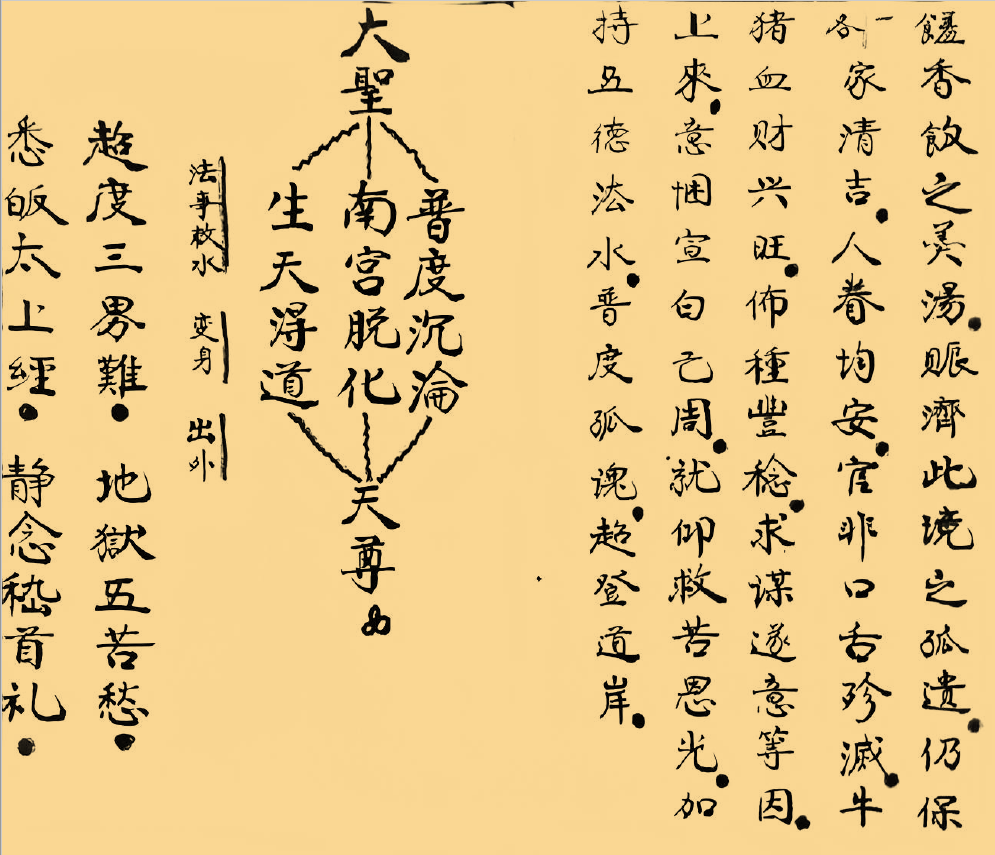 香飯之美湯。賑濟此境之孤遗。仍保
各家清吉。人眷均安。官非口舌殄滅。牛
猪血财兴旺。佈種豐稔。求谋遂意等因。
上來。意悃宣白己周。就仰救苦恩光。加
持五德法水。普度孤魂。超登道岸。
大聖
普度沉淪
南宫脱化
生天得道
天尊
法事敕水 变身 出外
超度三界難。地獄五苦愁。
悉皈太上經。静念嵇首礼。